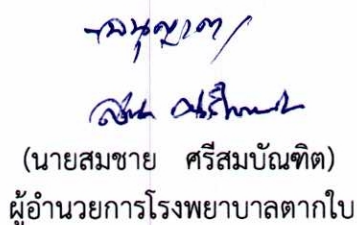 อนุญาต
(นายสมชาย ศรีสมบัณฑิต)
ผู้อำนวยการโรงพยาบาลตากใบ